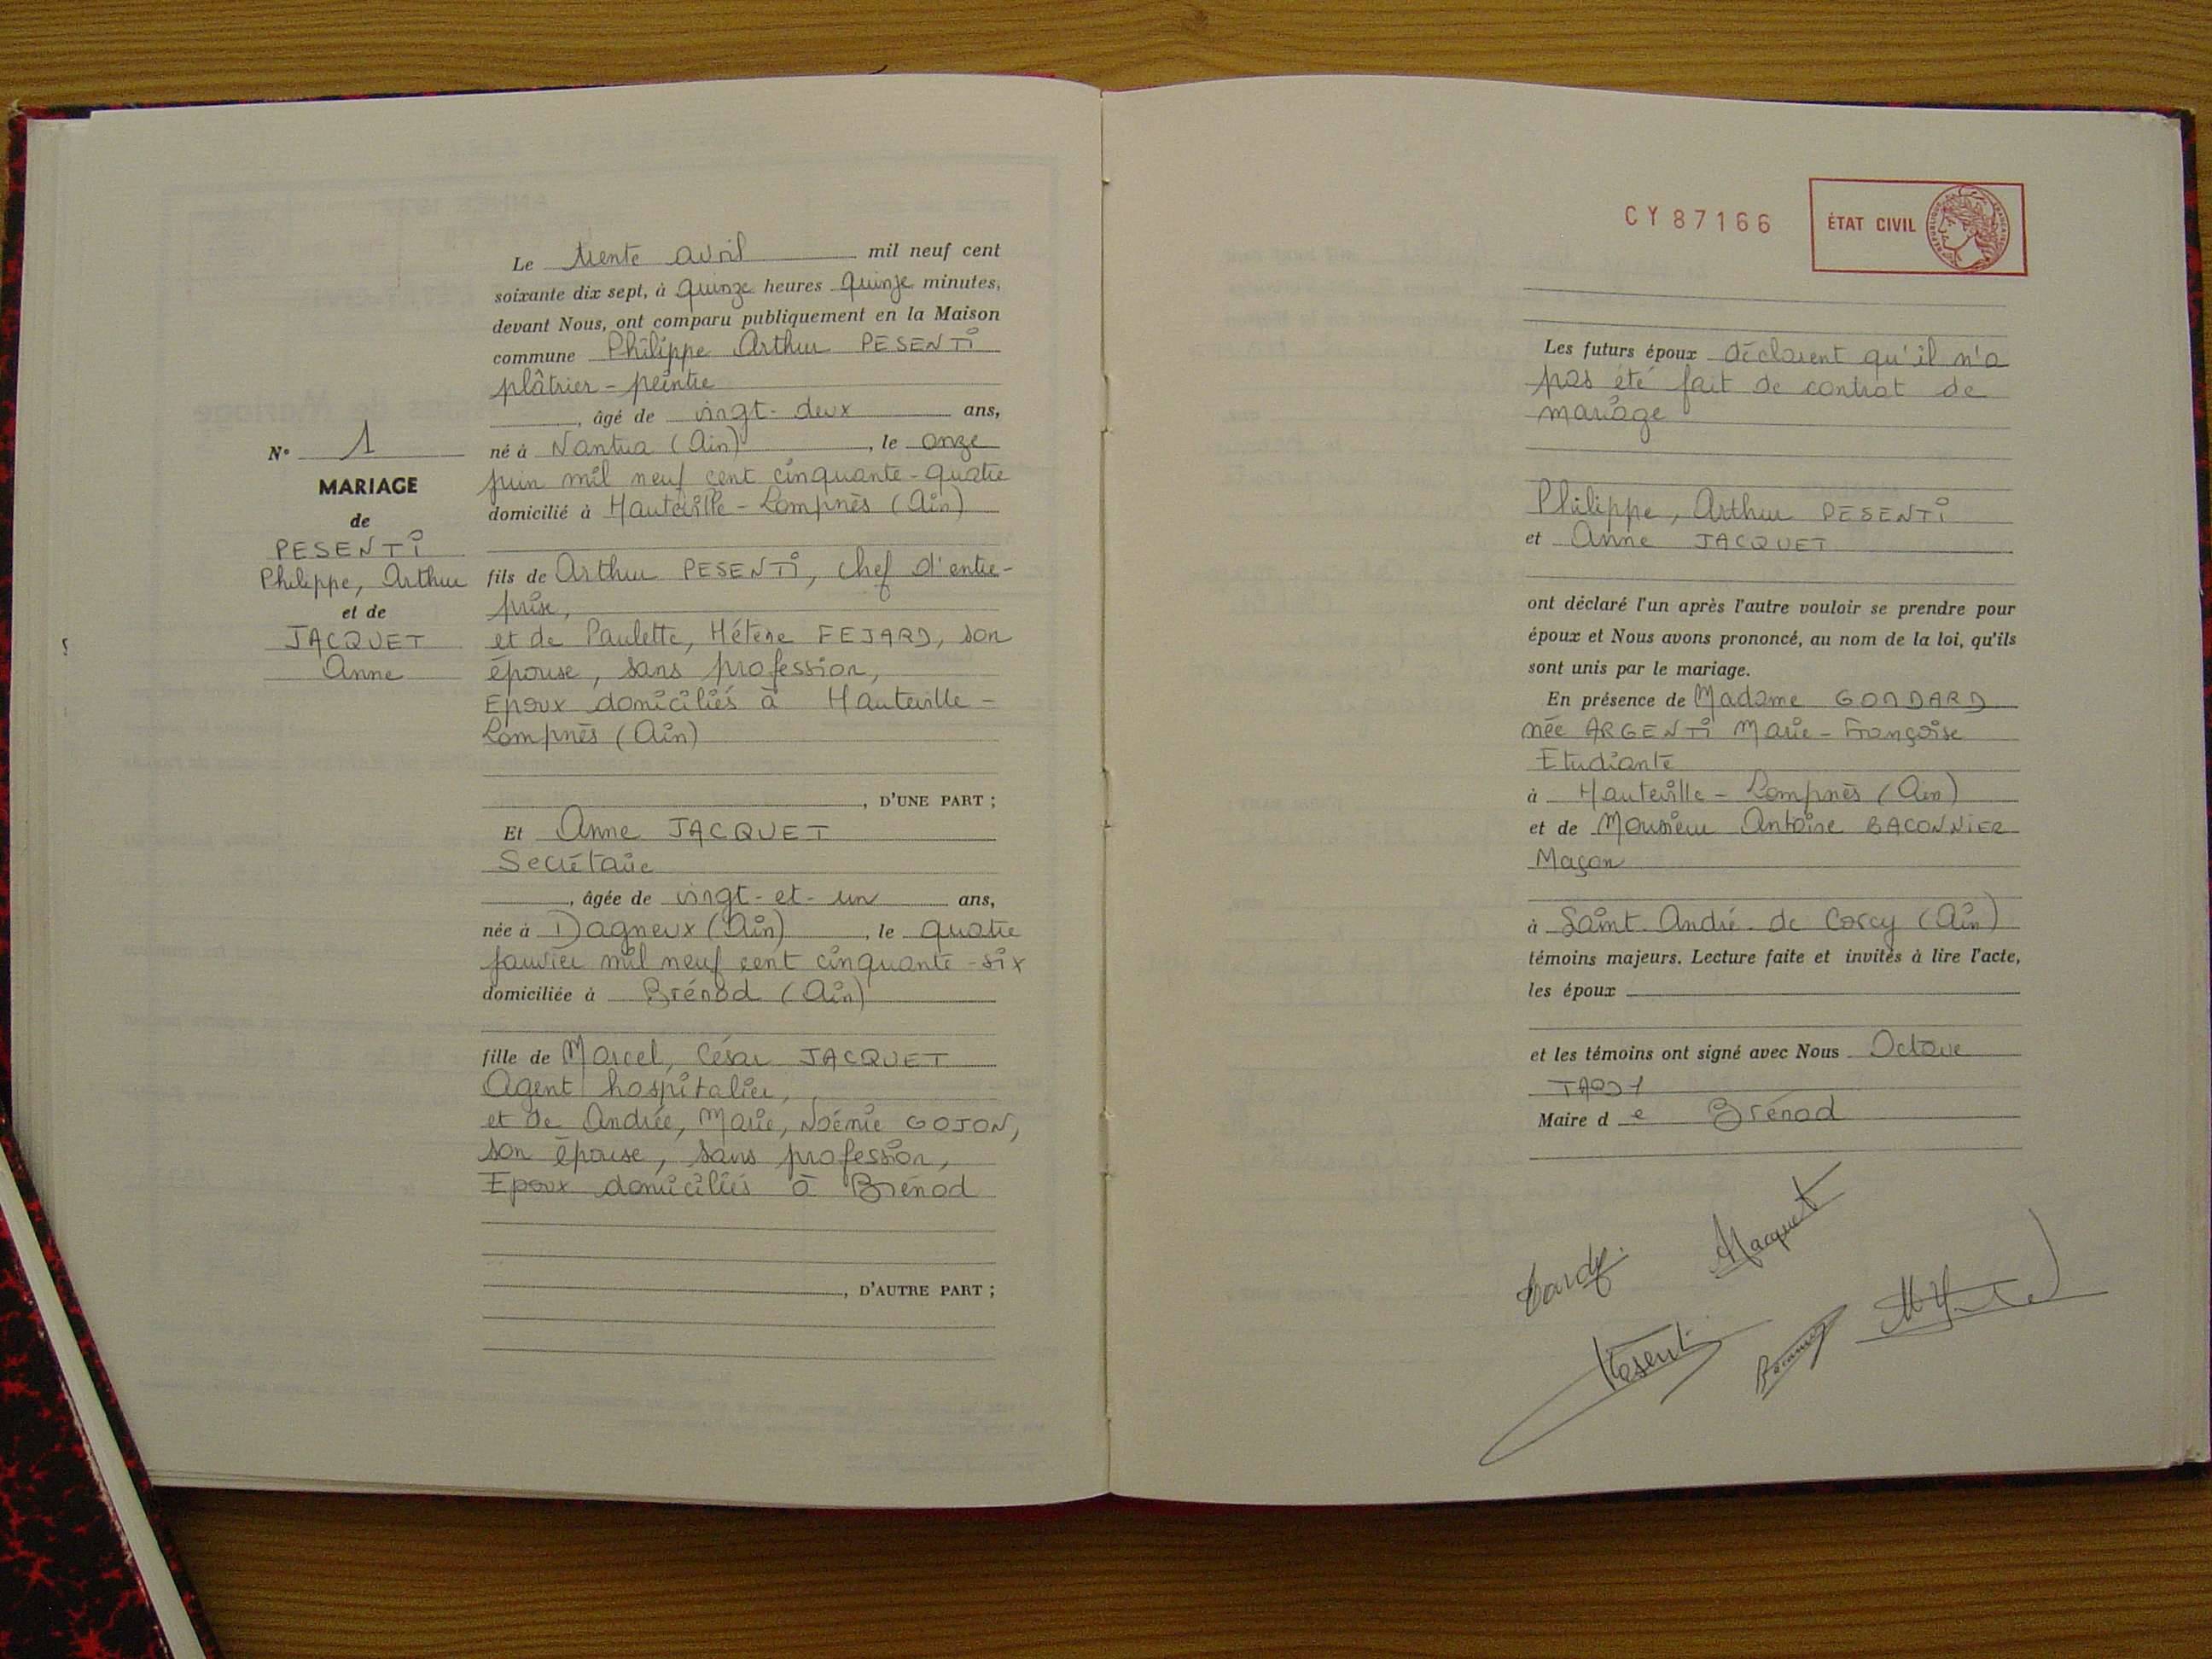 N° 1
MARIAGE
de
PESENTI
Philippe, Arthur
et de
JACQUET
Anne
Le trente avril mil neuf cent
soixante dix sept, à quinze heures quinze minutes,
devant Nous, ont comparu publiquement en la Maison
commune Philippe Arthur PESENTI
plâtrier - peintre
, âgé de vingt-deux ans,
né à Nantua (Ain), le onze
juin mil neuf cent cinquante-quatre
domicilié à Hauteville-Lompnès (Ain)
fils de Arthur PESENTI, chef d'entre-
prise,
et de Paulette, Hélène FEJARD, son
épouse, sans profession,
Epoux domiciliés à Hauteville-
Lompnès (Ain)
, D'UNE PART ;
Et Anne JACQUET
Secrétaire
, âgée de vingt-et-un ans,
née à Dagneux (Ain), le quatre
janvier mil neuf cent cinquante-six
domiciliée à Brénod (Ain)
fille de Marcel, César JACQUET
Agent hospitalier,
et de Andrée, Marie, Noémie GOJON,
son épouse, sans profession,
Epoux domiciliés à Brénod
, D'AUTRE PART ;
CY 87166
ÉTAT CIVIL
Les futurs époux déclarent qu'il n'a
pas été fait de contrat de
mariage
Philippe, Arthur PESENTI
et Anne JACQUET
ont déclaré l'un après l'autre vouloir se prendre pour
époux et Nous avons prononcé, au nom de la loi, qu'ils
sont unis par le mariage.
En présence de Madame GONDARD
née ARGENTI Marie-Françoise
Etudiante
à Hauteville-Lompnès (Ain)
et de Monsieur Antoine BACONNIER
Maçon
à Saint. André. de Corcy (Ain)
témoins majeurs. Lecture faite et invités à lire l'acte,
les époux
et les témoins ont signé avec Nous Octave
TARDY
Maire de Brénod
Tardy
AJacquet
Pesenti